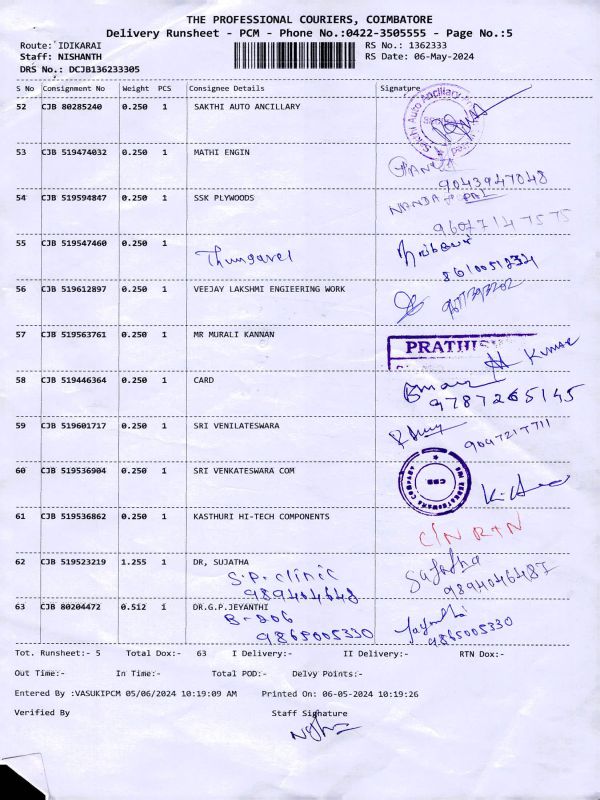 THE PROFESSIONAL COURIERS, COIMBATORE
Delivery Runsheet - PCM - Phone No.:0422-3505555 - Page No.:5
Route: IDIKARAI RS No.: 1362333
Staff: NISHANTH RS Date: 06-May-2024
DRS No.: DCJB136233305
S No Consignment No Weight PCS Consignee Details Signature
52 CJB 80285240 0.250 1 SAKTHI AUTO ANCILLARY
53 CJB 519474032 0.250 1 MATHI ENGIN
9043947048
54 CJB 519594847 0.250 1 SSK PLYWOODS
55 CJB 519547460 0.250 1
Thungavel
56 CJB 519612897 0.250 1 VEEJAY LAKSHMI ENGIEERING WORK
57 CJB 519563761 0.250 1 MR MURALI KANNAN
Kumar
58 CJB 519446364 0.250 1 CARD
9787265145
59 CJB 519601717 0.250 1 SRI VENILATESWARA
60 CJB 519536904 0.250 1 SRI VENKATESWARA COM
61 CJB 519536862 0.250 1 KASTHURI HI-TECH COMPONENTS
C/N RTN
62 CJB 519523219 1.255 1 DR, SUJATHA
S.P. clinic Sujatha
63 CJB 80204472 0.512 1 DR.G.P.JEYANTHI
B-206 Jeyanthi
9865005330 9865005330
Tot. Runsheet:- 5 Total Dox:- 63 I Delivery:- II Delivery:- RTN Dox:-
Out Time:- In Time:- Total POD:- Delvy Points:-
Entered By :VASUKIPCM 05/06/2024 10:19:09 AM Printed On: 06-05-2024 10:19:26
Verified By Staff Signature